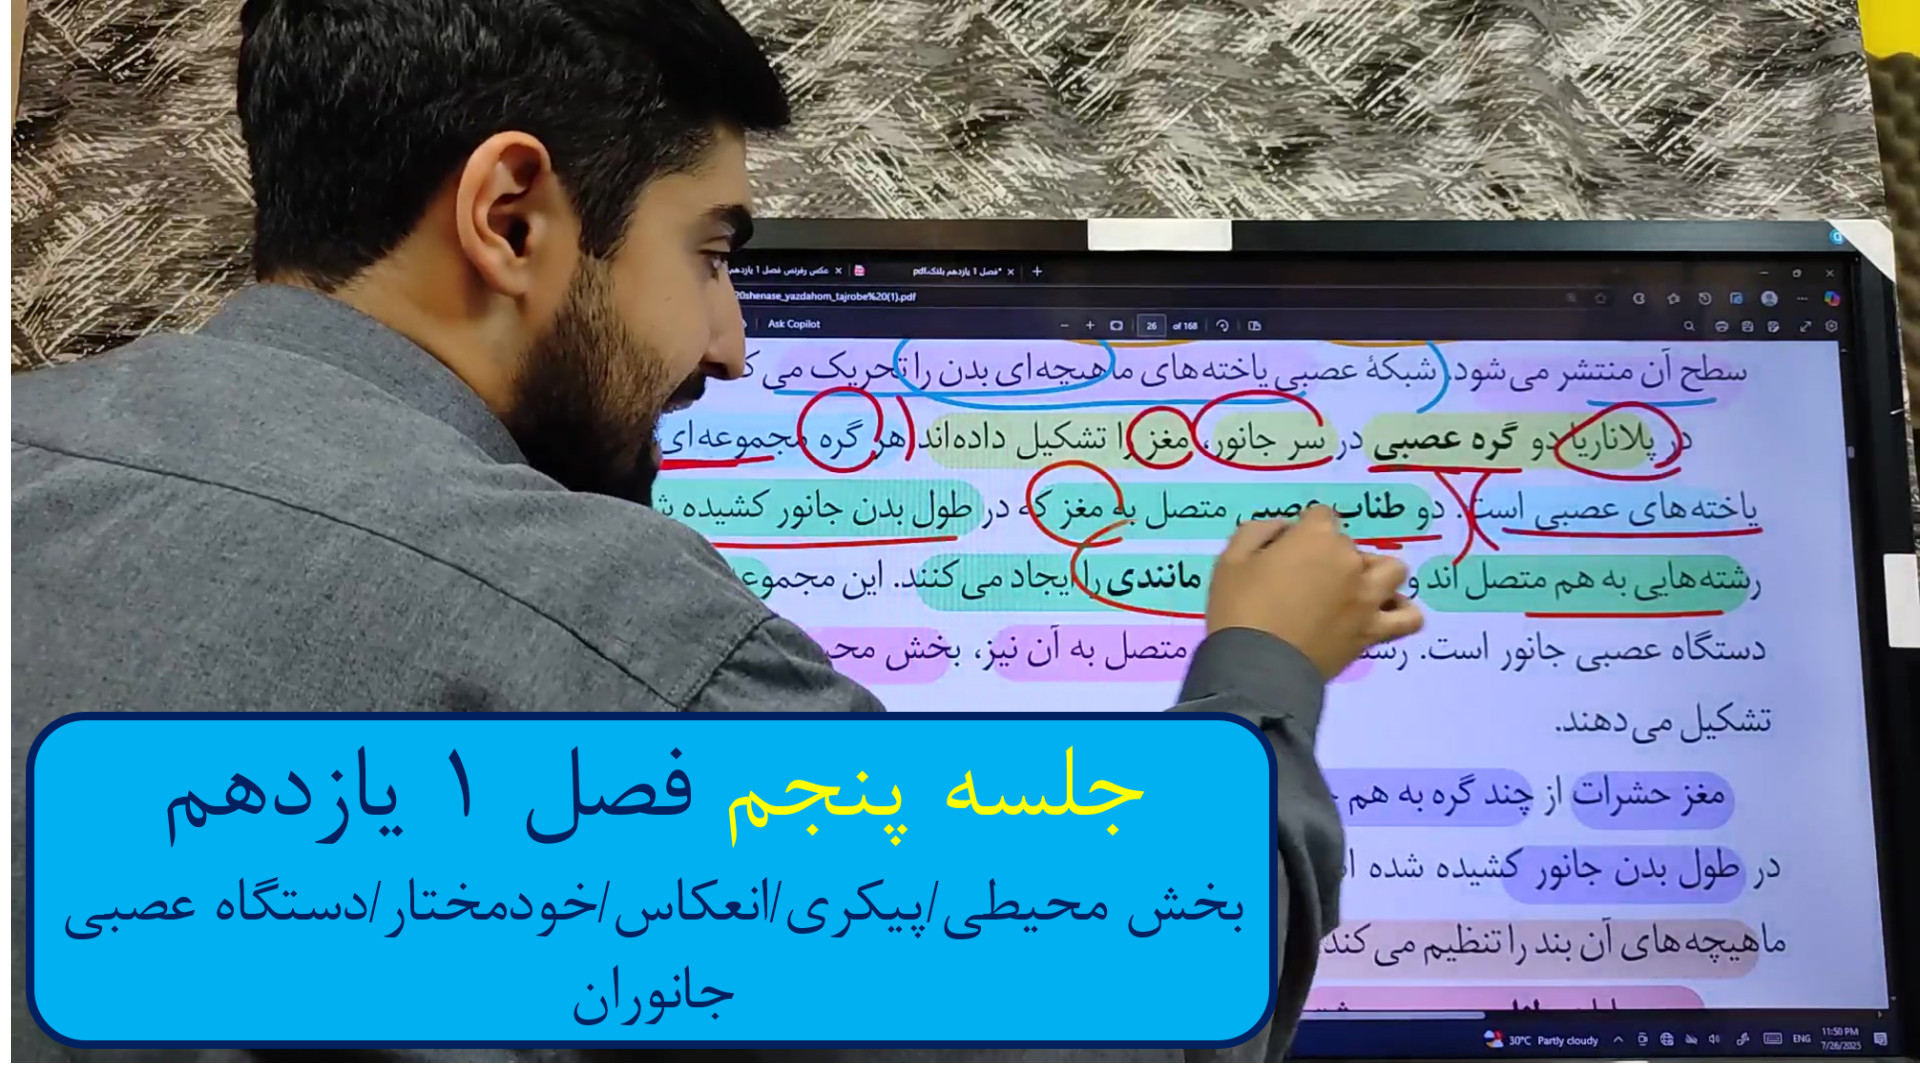 عکس رفرنس فصل 1 یازدهم
*فصل 1 یازدهم بلنک.pdf
20shenase_yazdahom_tajrobe%20(1).pdf
Ask Copilot
26 of 168
سطح آن منتشر می‌شود. شبکهٔ عصبی یاخته‌های ماهیچه‌ای بدن را تحریک می
در پلاناریا دو گره عصبی در سر جانور، مغز را تشکیل داده‌اند. هر گره مجموعه‌ای
یاخته‌های عصبی است. دو طناب عصبی متصل به مغز که در طول بدن جانور کشیده
رشته‌هایی به هم متصل اند و مانندی را ایجاد می‌کنند. این
دستگاه عصبی جانور است. متصل به آن نیز، بخش
تشکیل می‌دهند.
مغز حشرات از چند گره به هم
در طول بدن جانور کشیده شده
ماهیچه‌های آن بند را تنظیم می‌کند
جلسه پنجم فصل ۱ یازدهم
بخش محیطی/پیکری/انعکاس/خودمختار/دستگاه عصبی
جانوران
30°C Partly cloudy
ENG
11:50 PM
7/26/2025